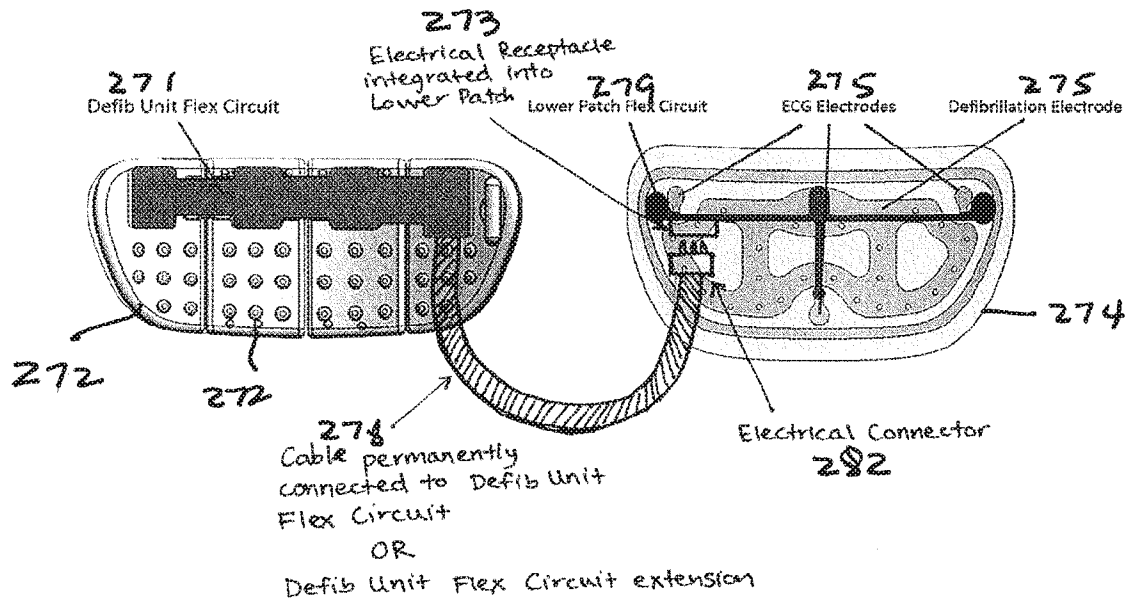 273
Electrical Receptacle
integrated into
Lower Patch
271
Defib Unit Flex Circuit
279
Lower Patch Flex Circuit
275
ECG Electrodes
275
Defibrillation Electrode
274
272
272
278
Cable permanently
connected to Defib Unit
Flex Circuit
OR
Defib Unit Flex Circuit extension
Electrical Connector
282